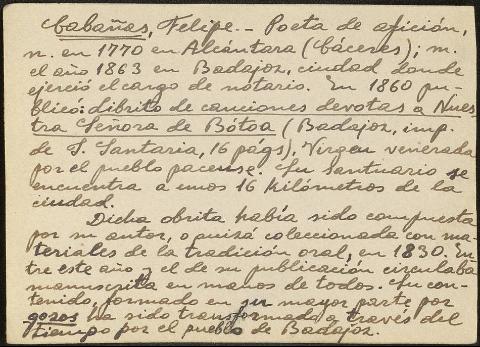 Cabañas, Felipe.- Poeta de afición,
n. en 1770 en Alcántara (Cáceres); m.
el año 1863 en Badajoz, ciudad donde
ejerció el cargo de notario. En 1860 pu-
blicó: Librito de canciones devotas a Nues-
tra Señora de Bótoa (Badajoz, imp.
de S. Santaria, 16 págs), Virgen venerada
por el pueblo pacense. Su santuario se
encuentra a unos 16 kilómetros de la
ciudad.
Dicha obrita había sido compuesta
por su autor, o quizá coleccionada con ma-
teriales de la tradición oral, en 1830. En-
tre este año y el de su publicación circulaba
manuscrita en manos de todos. Su con-
tenido, formado en su mayor parte por
gozos ha sido transformado a través del
tiempo por el pueblo de Badajoz.